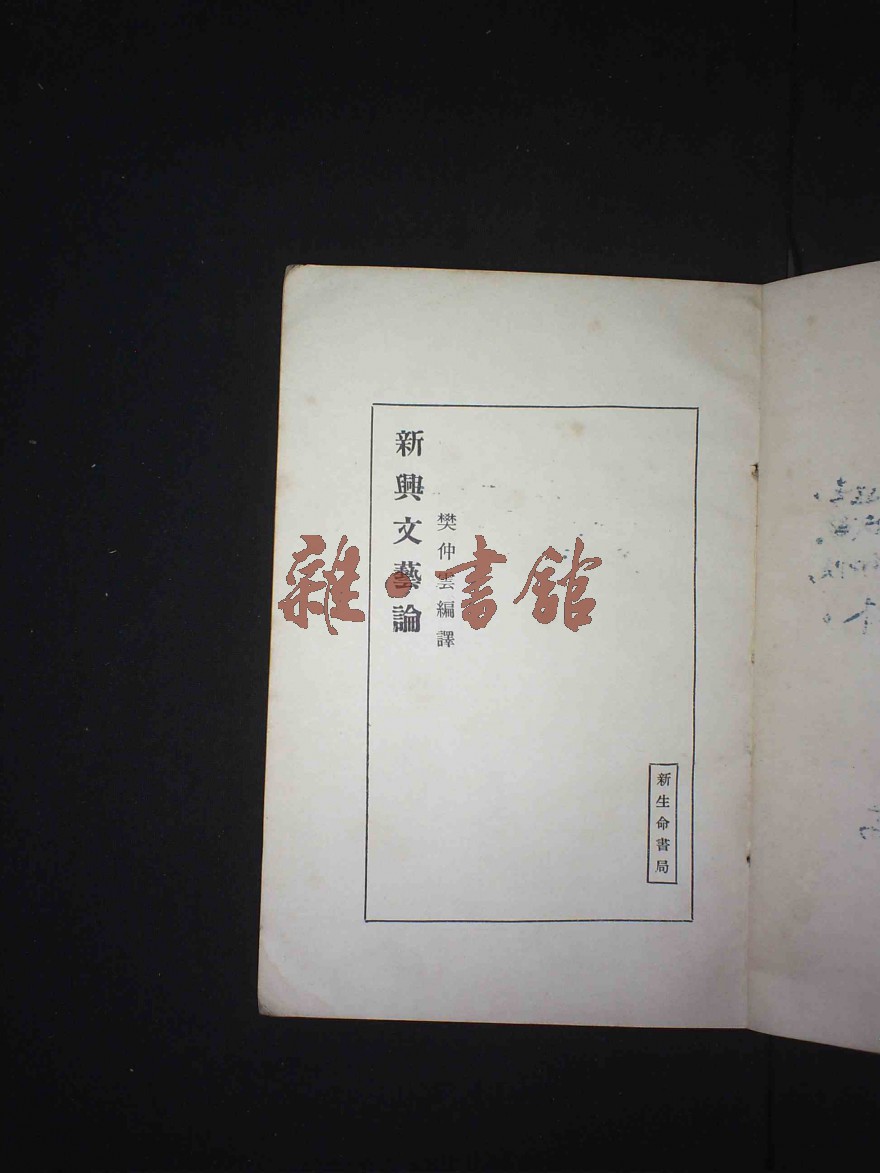 新興文藝論
樊仲雲編譯
新生命書局
雜·書館